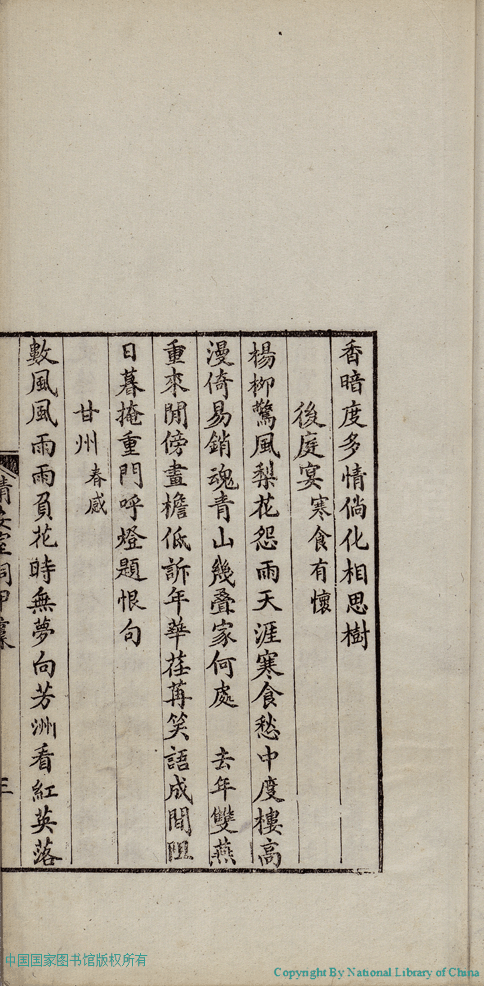 香暗度多情倘化相思樹
後庭宴 寒食有懷
楊柳驚風梨花怨雨天涯寒食愁中度樓高
漫倚易銷魂青山幾疊家何處 去年雙燕
重來閒傍畫檐低訴年華荏苒笑語成間阻
日暮掩重門呼燈題恨句
甘州 春感
數風風雨雨負花時無夢向芳洲看紅英落
室詞甲稾
三
中国国家图书馆版权所有
Copyright By National Library of China